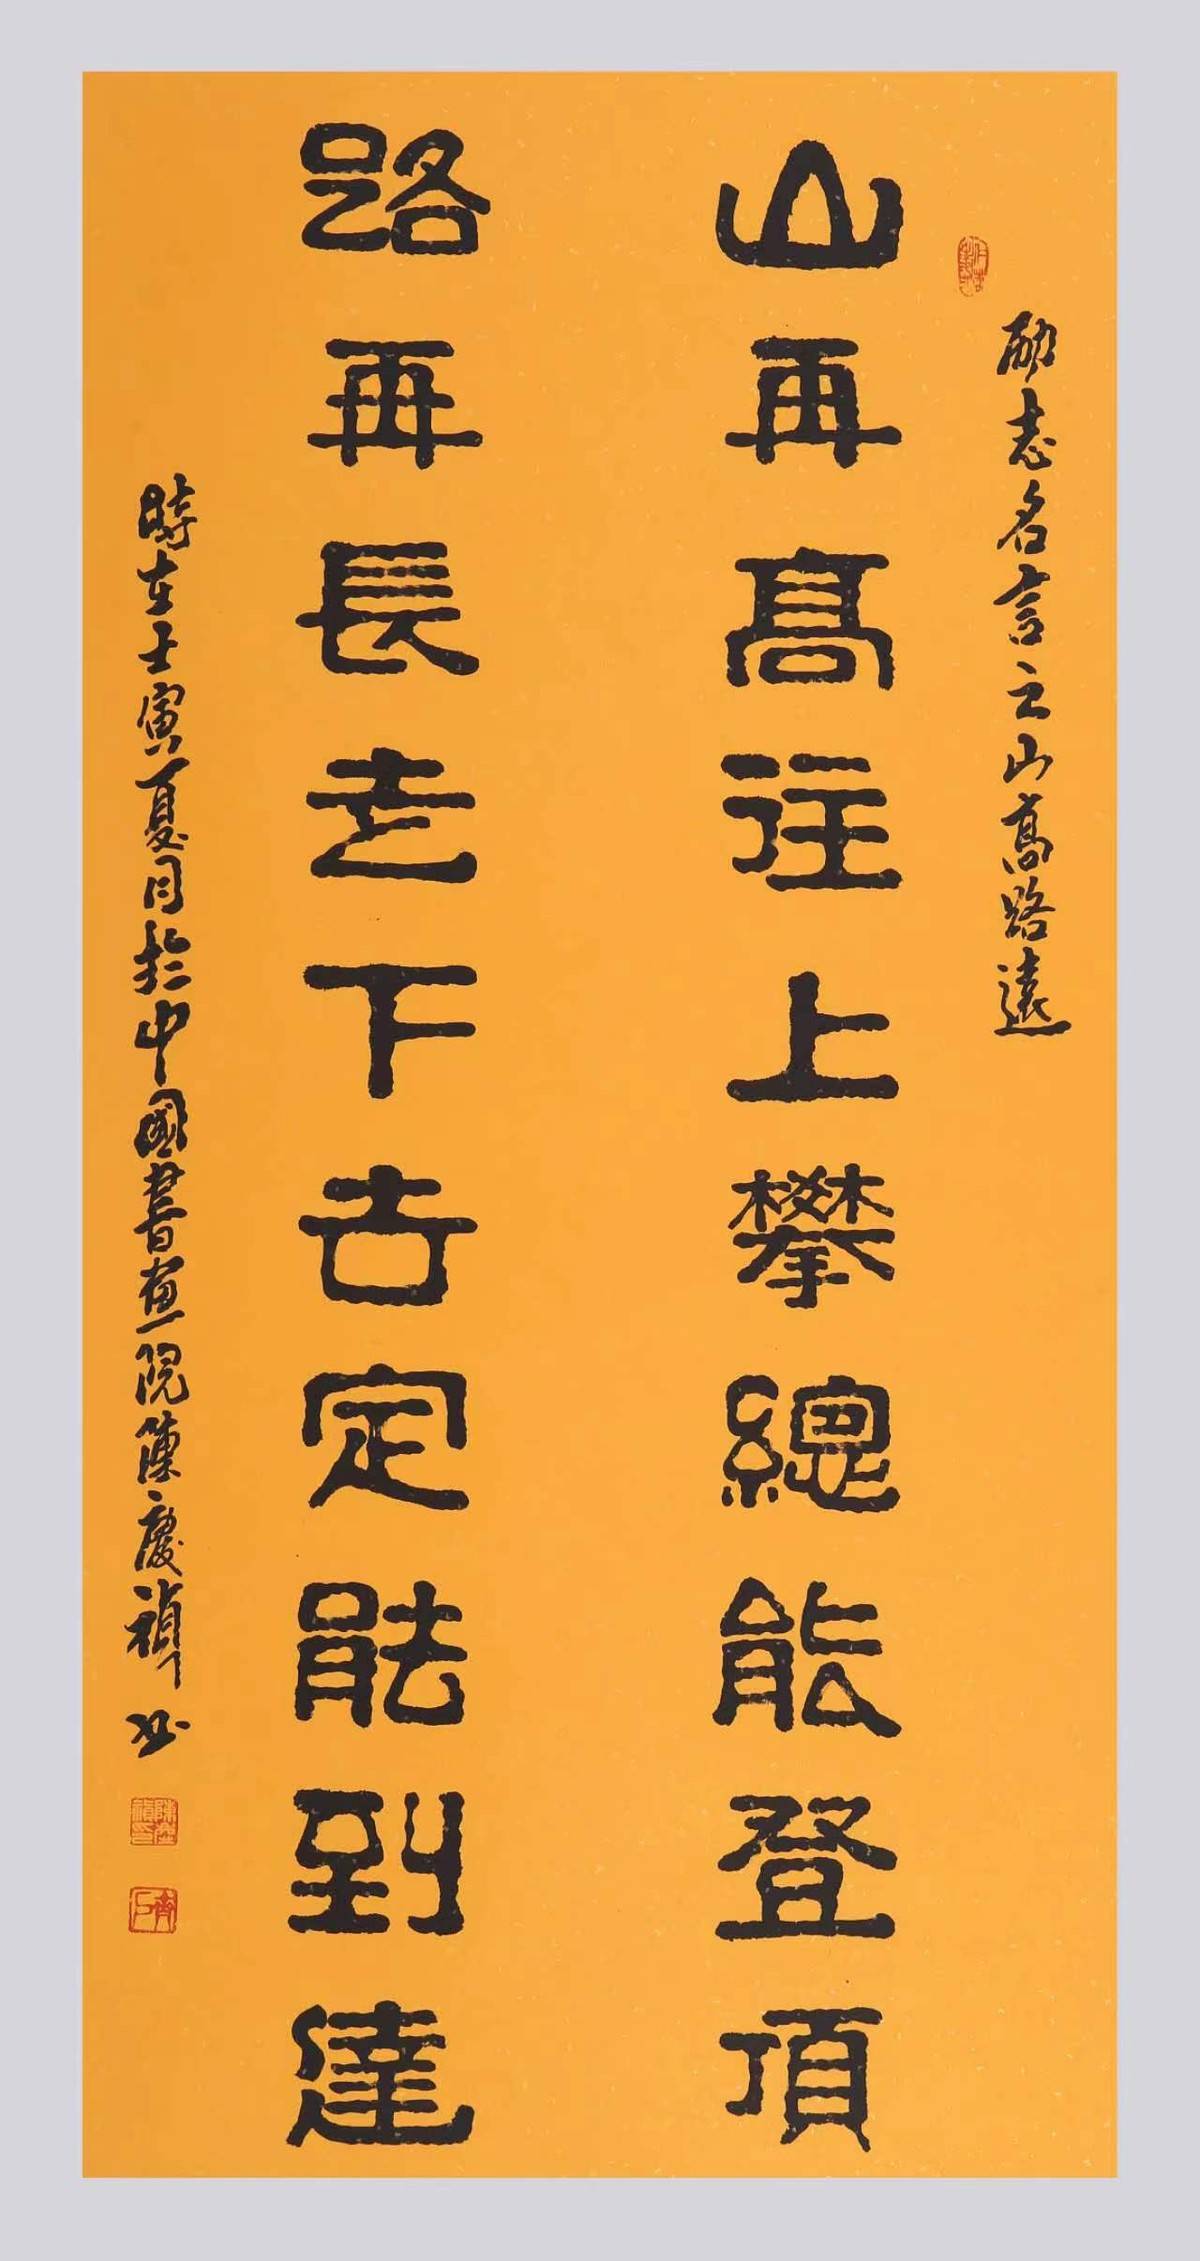 勵志名言之山高路遠
山再高往上攀總能登頂
路再長走下去定能到達
時在壬寅夏月於中國書畫院陳慶禎書